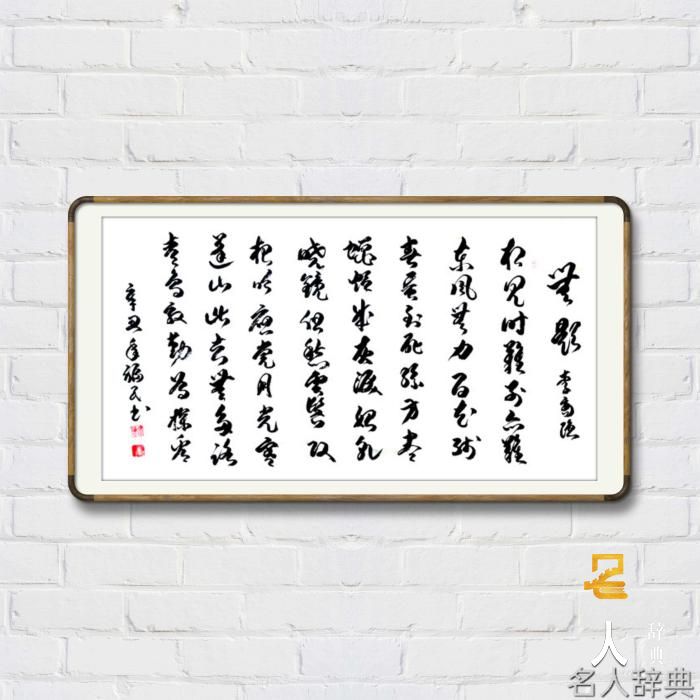 無題
李商隱
相見時難別亦難
東風無力百花殘
春蠶到死絲方盡
蠟炬成灰淚始乾
曉鏡但愁雲鬢改
夜吟應覺月光寒
蓬山此去無多路
青鳥殷勤為探看
辛丑年福民书
人
辞典
名人辞典